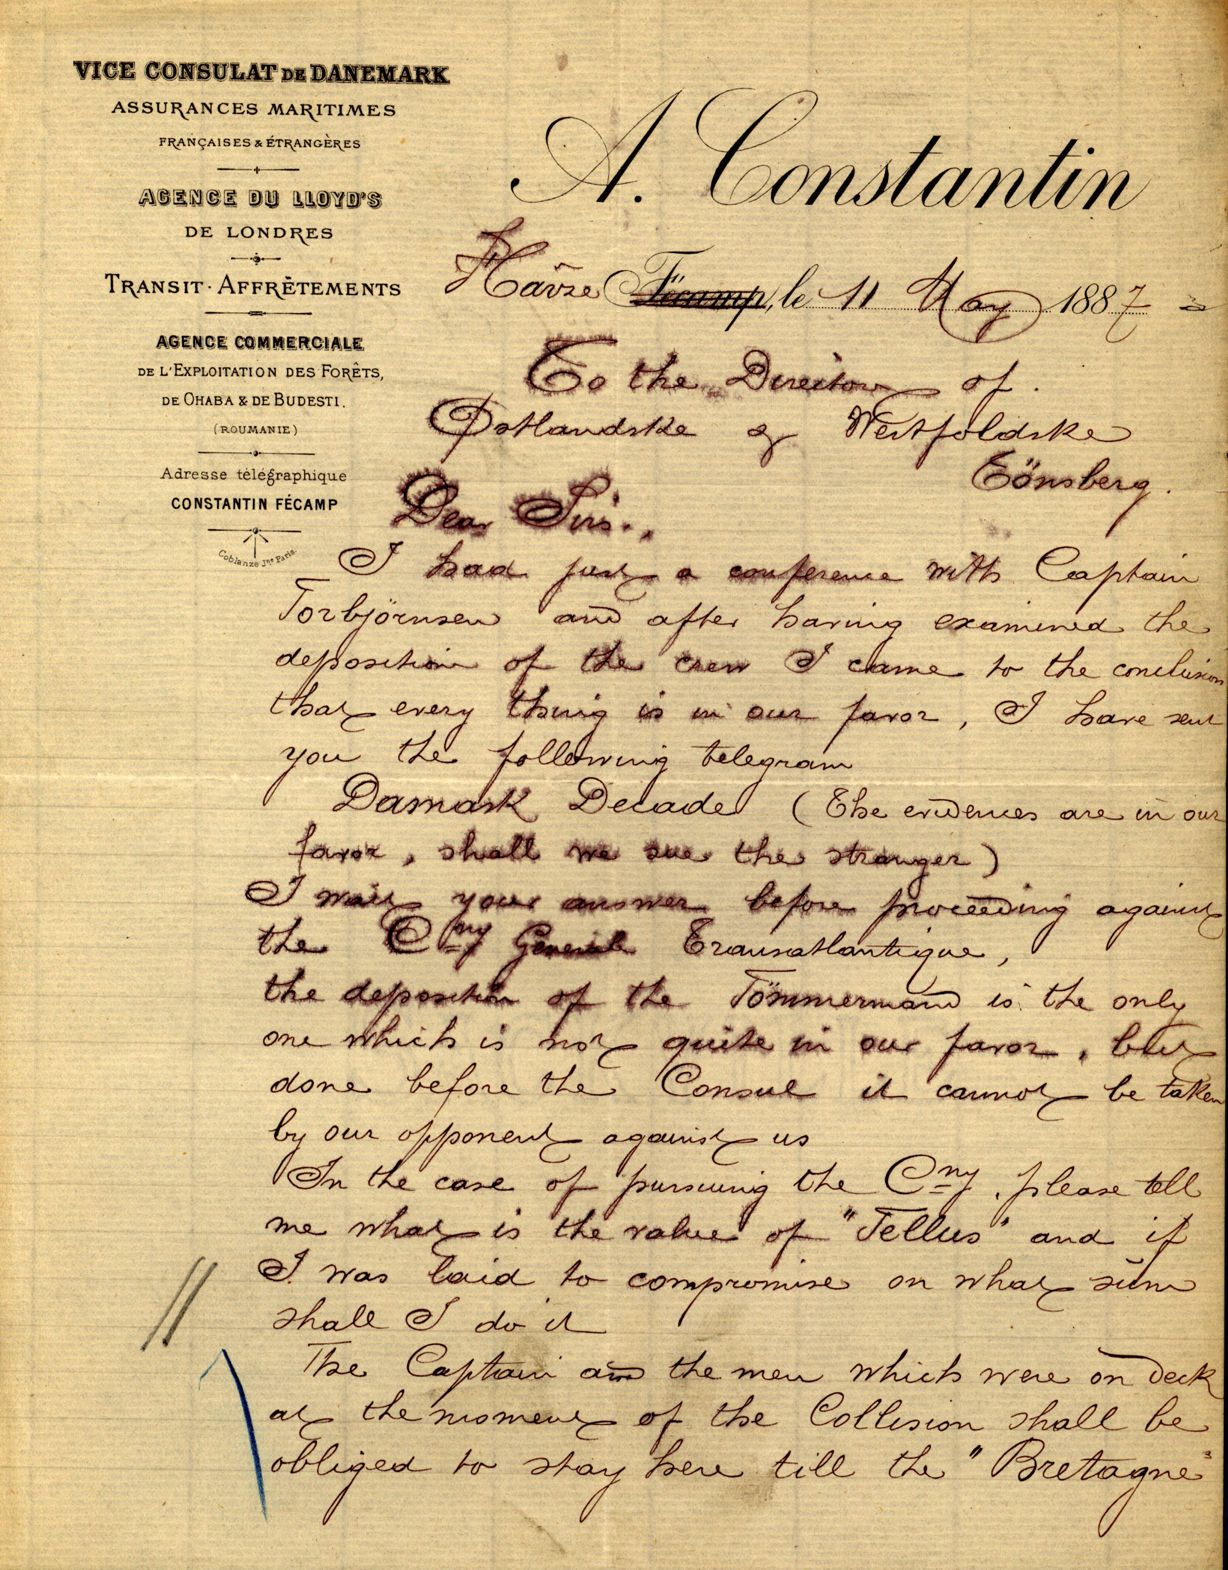 VICE CONSULAT DE DANEMARK
ASSURANCES MARITIMES
FRANÇAISES & ÉTRANGÈRES
AGENCE DU LLOYD'S
DE LONDRES
TRANSIT · AFFRÈTEMENTS
AGENCE COMMERCIALE
DE L'EXPLOITATION DES FORÊTS,
DE OHABA & DE BUDESTI.
(ROUMANIE)
Adresse télégraphique
CONSTANTIN FÉCAMP
Coblanze Jne Paris.
A. Constantin
Hâvre Fécamp, le 11 May 1887
To the Director of
Østlandske og Westfoldske
Tönsberg.
Dear Sirs.,
I had just a conference with Captain
Torbjörnsen and after having examined the
deposition of the crew I came to the conclusion
that every thing is in our favor, I have sent
you the following telegram
Damask Decade (The evidences are in our
favor, shall we sue the stranger)
I wait your answer before proceeding against
the Cny General Transatlantique,
the deposition of the Tömmermand is the only
one which is not quite in our favor, but
done before the Consul it cannot be taken
by our opponent against us
In the case of pursuing the Cny, please tell
me what is the value of "Tellus" and if
I was laid to compromise on what sum
shall I do it
The Captain and the men which were on deck
at the moment of the Collision shall be
obliged to stay here till the "Bretagne"